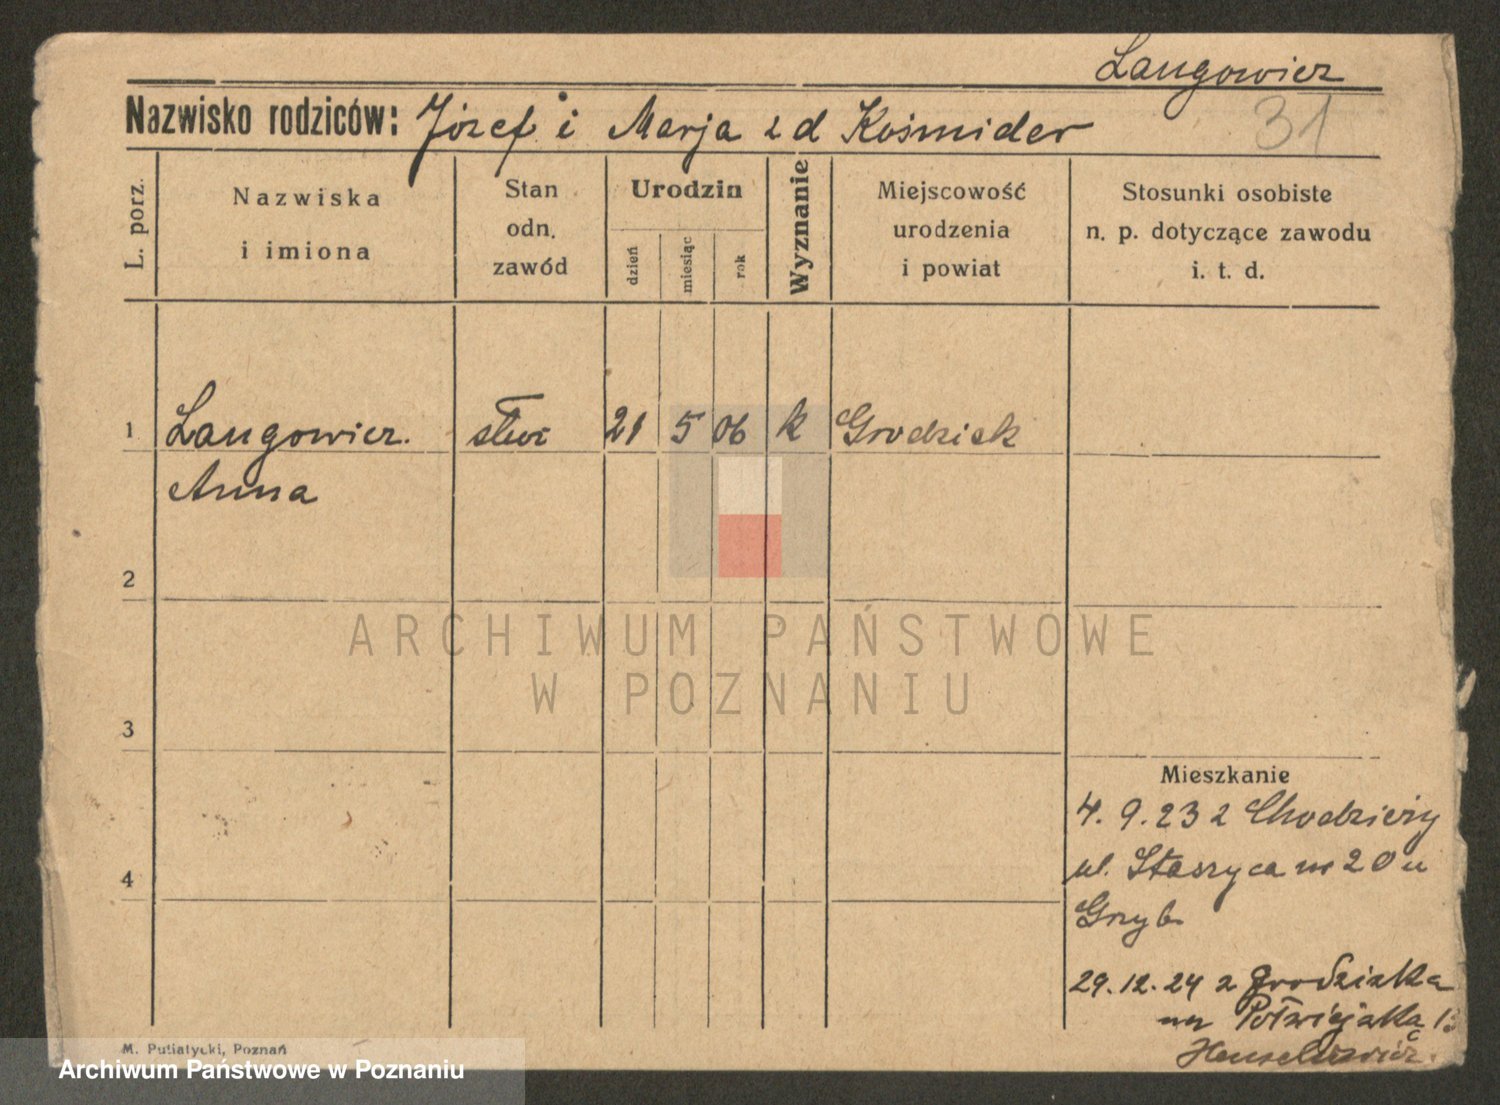 Langowicz
31
Nazwisko rodziców: Józef i Marja z d Kośmider
L. porz.
Nazwiska
i imiona
Stan
odn.
zawód
Urodzin
dzień
miesiąc
rok
Wyznanie
Miejscowość
urodzenia
i powiat
Stosunki osobiste
n. p. dotyczące zawodu
i. t. d.
1 Langowicz. służ 21 5 06 k Grodzisk
Anna
2
ARCHIWUM PAŃSTWOWE
W POZNANIU
3
Mieszkanie
4. 9. 23 z Chodzieży
ul. Staszyca nr 20 u
4
Grzyb
29.12.24 z Grodziska
13
M. Putiatycki, Poznań
Archiwum Państwowe w Poznaniu